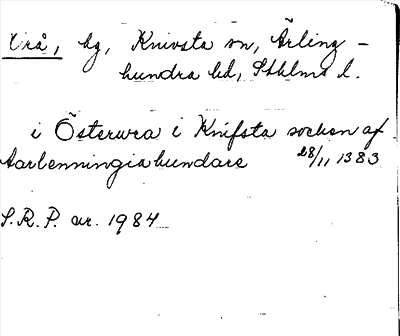 Vrå, hg, Knivsta sn, Ärling-
hundra hd, Sthlms l.
i Österwra i Knifsta socken af
Aarlenningia hundare 28/11 1383
S.R.P. nr. 1984